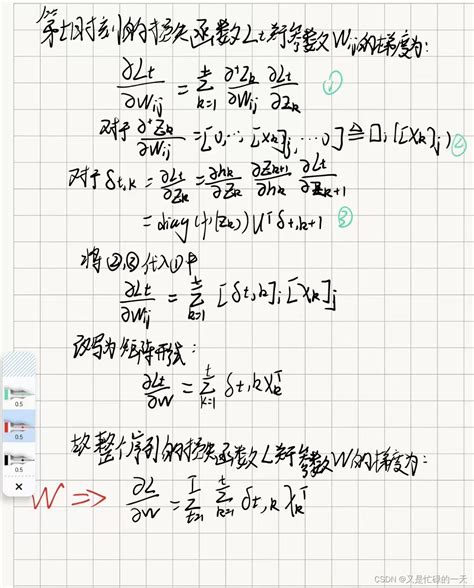 第t时刻的损失函数Lt对参数Wij的梯度为:
∂Lt/∂Wij = Σ_{k=1}^{t} ∂⁺Zk/∂Wij ∂Lt/∂Zk ①
对于 ∂⁺Zk/∂Wij = [0,…,[Xk]j,…0] ≜ 𝕀i([Xk]j) ②
对于 δt,k = ∂Lt/∂Zk = ∂hk/∂Zk ∂Zk+1/∂hk ∂Lt/∂Zk+1
= diag(f'(Zk)) Uᵀ δt,k+1 ③
将②,③代入①中
∂Lt/∂Wij = Σ_{k=1}^{t} [δt,k]i [Xk]j
改写为矩阵形式:
∂Lt/∂W = Σ_{k=1}^{t} δt,k Xkᵀ
故整个序列的损失函数L对参数W的梯度为:
W ⇒ ∂L/∂W = Σ_{t=1}^{T} Σ_{k=1}^{t} δt,k Xkᵀ
0.5
0.5
0.5
×
CSDN @又是忙碌的一天